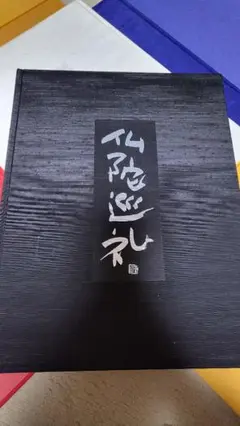 仏陀巡礼